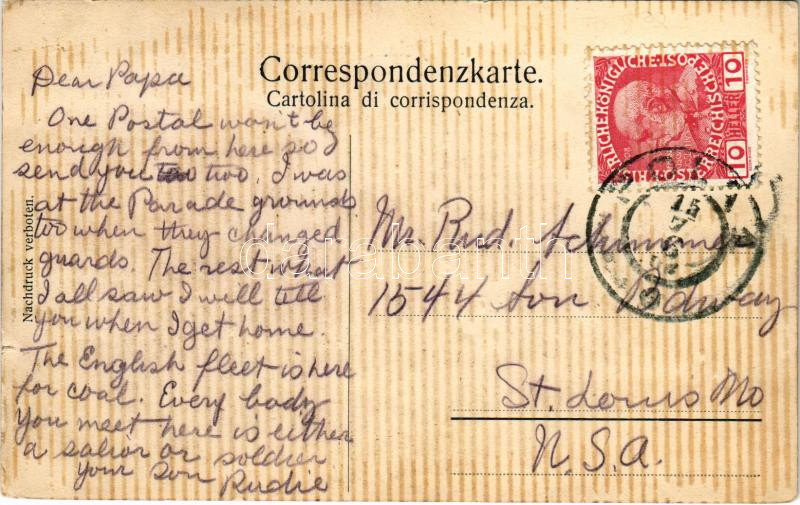 Dear Papa
One Postal won't be
enough from here so I
send you too two. I was
at the Parade grounds
too when they changed
guards. The rest what
I all saw I will tell
you when I get home.
The English fleet is here
for coal. Every body
you meet here is either
a salior or soldier
your son
Rudie
Nachdruck verboten.
Correspondenzkarte.
Cartolina di corrispondenza.
10 HELLER 10
Mr. Rud.
1544 So. Bdway
St. Louis Mo
U.S.A.
darabanth